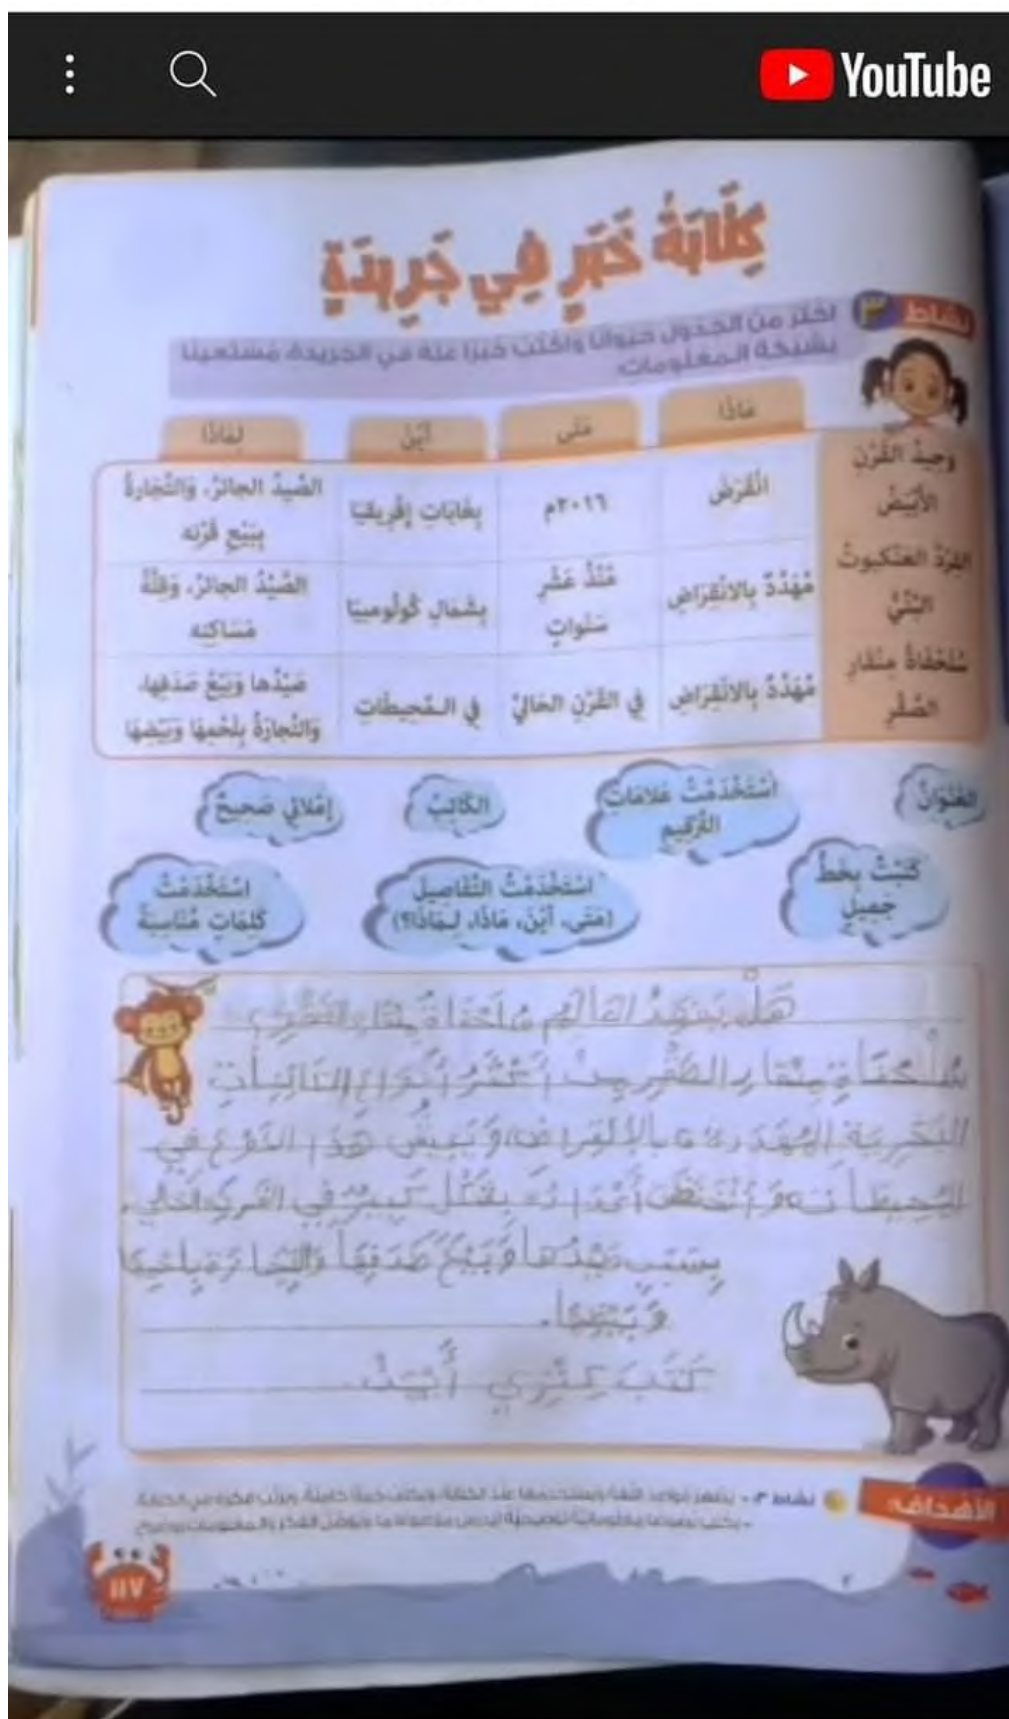 YouTube
كِتَابَةُ خَبَرٍ فِي جَرِيدَةٍ
نشاط ٣
اختر من الجدول حيوانًا واكتب خبرًا عنه في الجريدة، مستعينًا
بشبكة المعلومات.
مَاذَا
مَتَى
أَيْنَ
لِمَاذَا
وَحِيدُ القَرْنِ
الأَبْيَضُ
انْقَرَضَ
٢٠١٦م
بِغَابَاتِ إفْرِيقيَا
الصَّيدُ الجائرُ، وَالتِّجَارةُ
بِبَيْعِ قَرْنِه
القِرْدُ العَنكبوتُ
البُنِّيُّ
مُهَدَّدٌ بِالانْقِرَاضِ
مُنْذُ عَشْرِ
سَنَواتٍ
بِشَمَالِ كُولُومبيَا
الصَّيْدُ الجائرُ، وَقِلَّةُ
مَسَاكِنِه
سُلَحْفَاةُ مِنْقَارِ
الصَّقْرِ
مُهَدَّدٌ بِالانْقِرَاضِ
فِي القَرْنِ الحَاليِّ
فِي الـمُحِيطَاتِ
صَيْدُها وَبَيْعُ صَدَفِها،
وَالتِّجارَةُ بِلَحْمِهَا وَبَيْضِهَا
العُنْوَانُ
اسْتَخْدَمْتُ عَلامَاتِ
التَّرْقِيمِ
الكَاتِبُ
إمْلائِي صَحِيحٌ
كَتَبْتُ بِخَطٍّ
جَمِيلٍ
اسْتَخْدَمْتُ التَّفَاصِيلَ
(مَتَى، أَيْنَ، مَاذَا، لِـمَاذَا؟)
اسْتَخْدَمْتُ
كَلِمَاتٍ مُنَاسِبَةً
هَلْ العالم سلحفاة منقار الصقر؟
سلحفاة منقار الصقر من أكثر أنواع الكائنات
البحرية المهددة بالانقراض، ويعيش هذا النوع في
المحيطات، وانخفض أعداده بشكل كبير في القرن الحالي،
بِسَبَبِ صَيْدُها وَبَيْعُ صَدَفِهَا وَالتِّجَارَة بِلَحْمِهَا
وَبَيْضِهَا.
الأهداف:
نشاط ٣:
١١٧